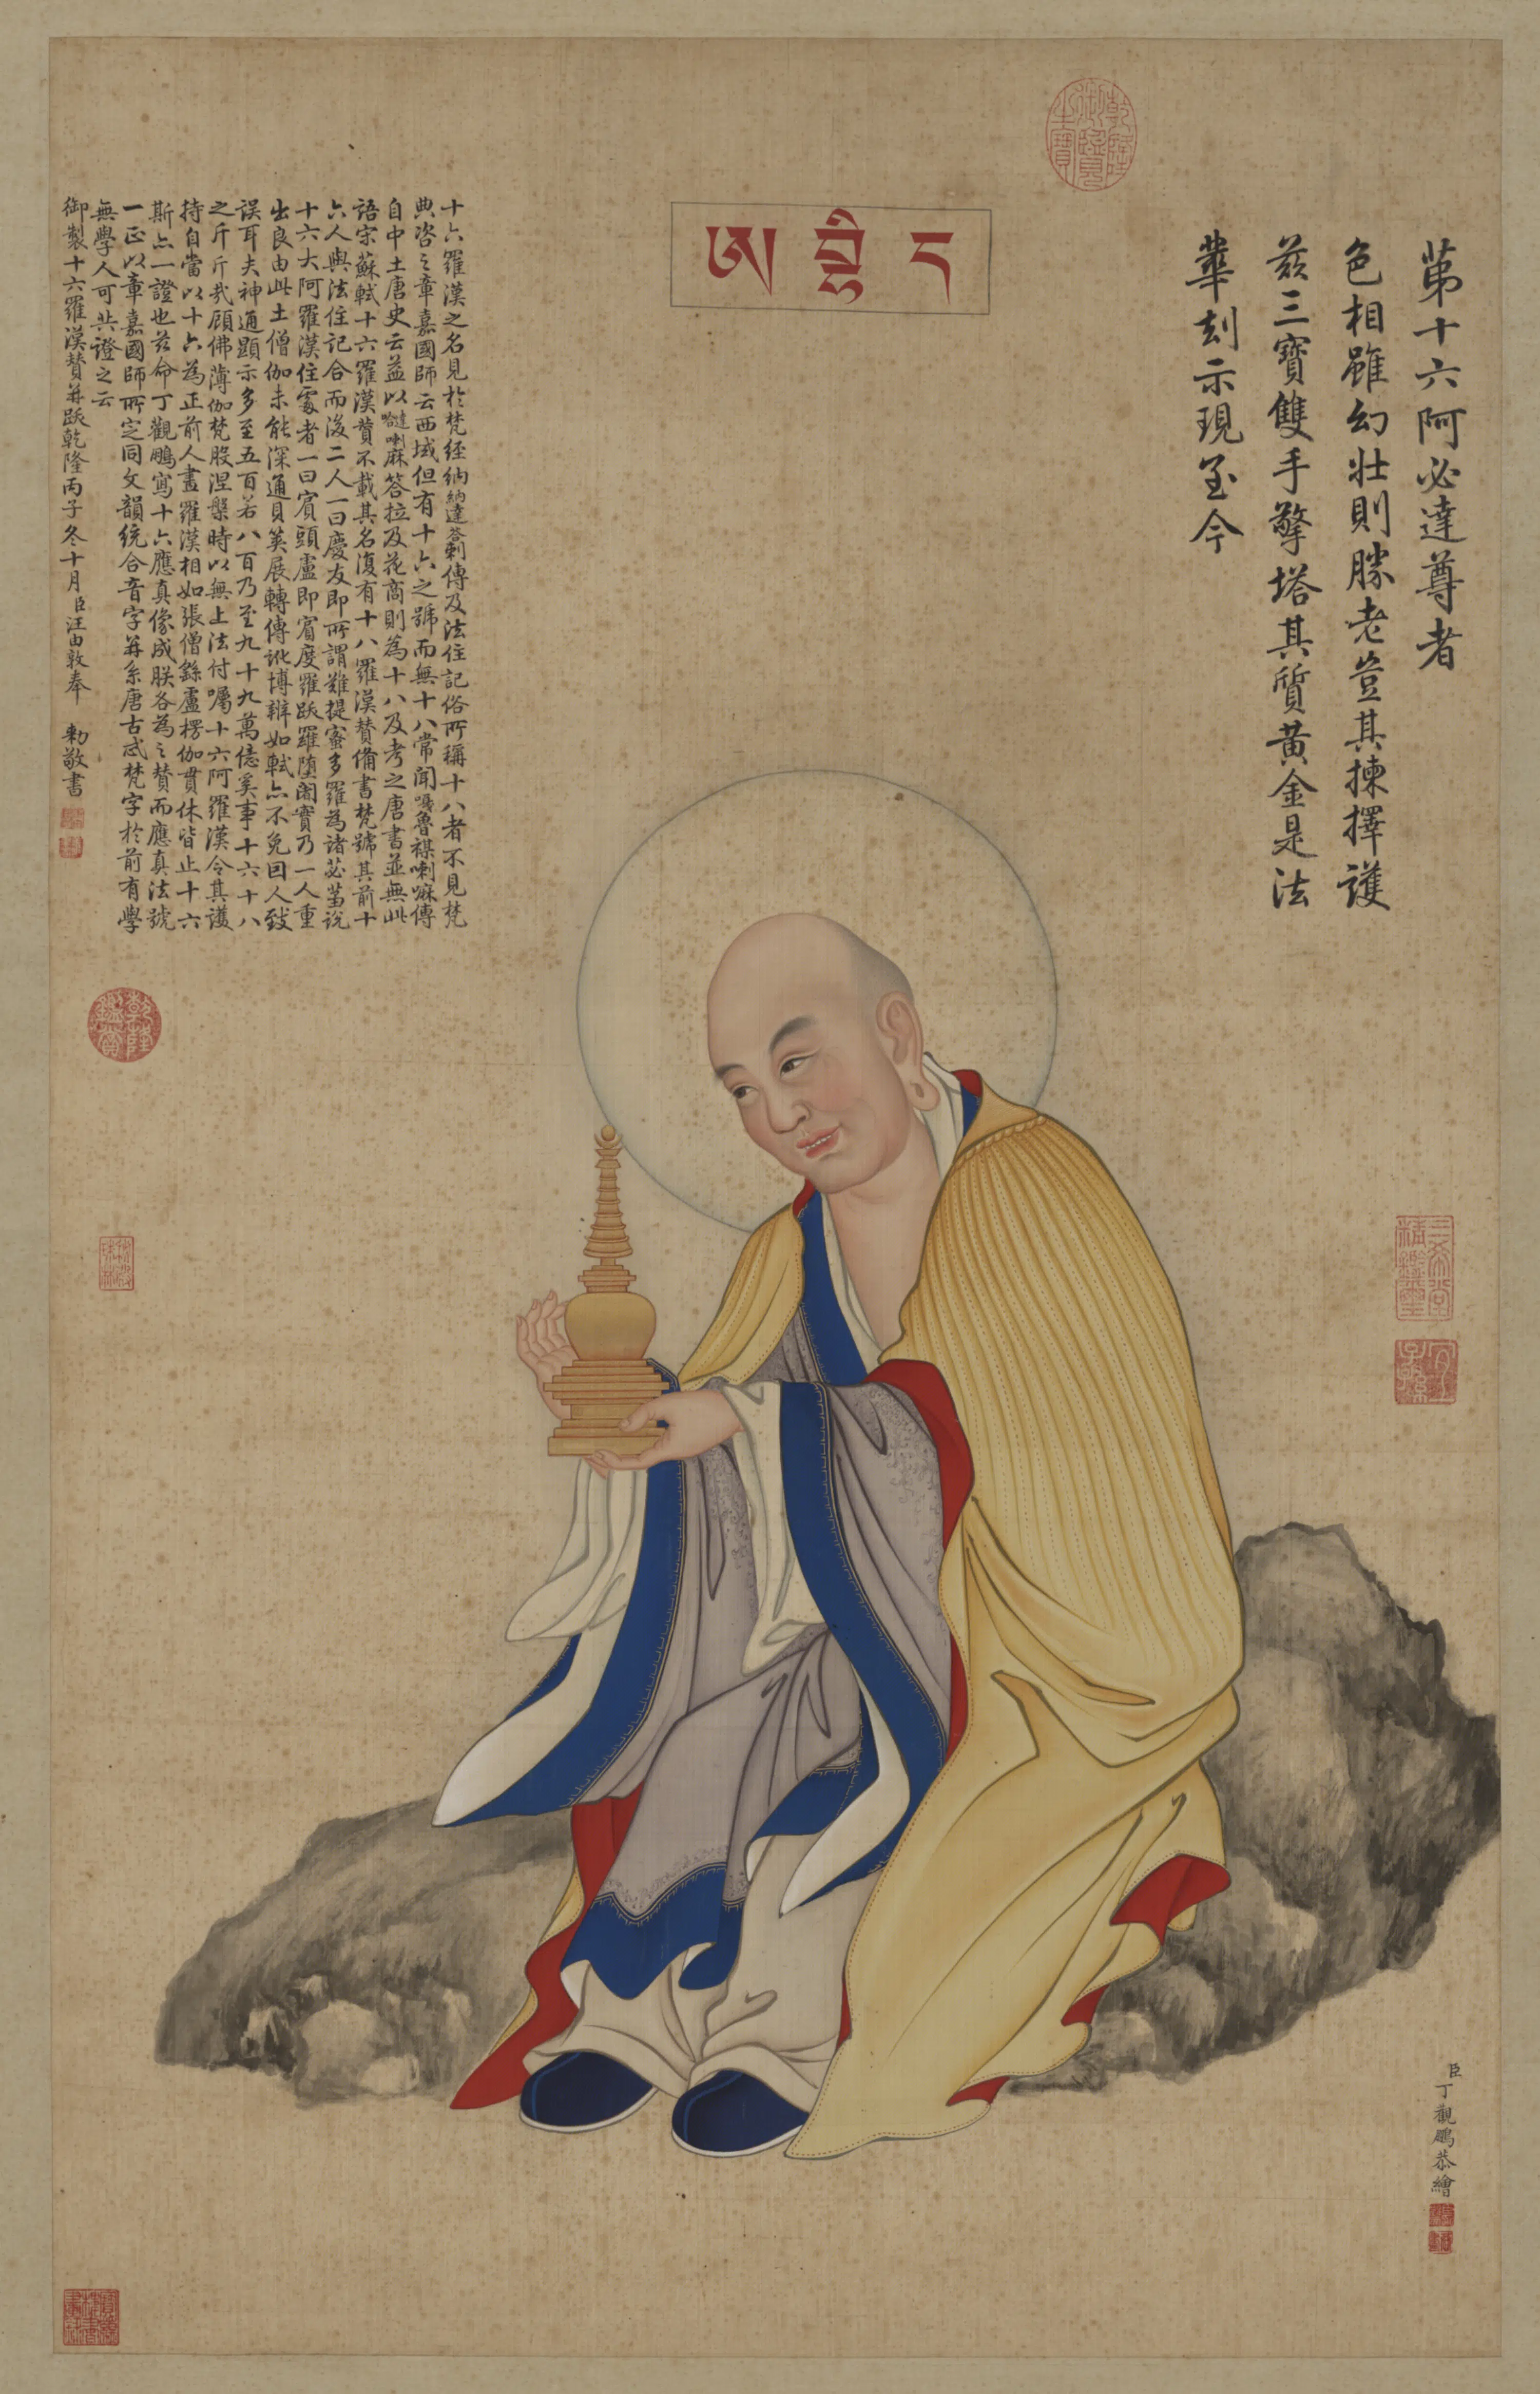 第十六阿必達尊者
色相雖幻壯則勝老豈其揀擇護
茲三寶雙手擎塔其質黃金是法
輩刻示現至今
ཨ བྷི ད
十六羅漢之名見於梵經納納達答剌傳及法住記俗所稱十八者不見梵
典咨之章嘉國師云西域但有十六之號而無十八常聞嘎魯禖喇嘛傳
自中土唐史云益以噠喇麻答拉及花商則為十八及考之唐書並無此
語宋蘇軾十六羅漢贊不載其名復有十八羅漢贊備書梵號其前十
六人與法住記合而後二人一曰慶友即所謂難提蜜多羅為諸苾蒭說
十六大阿羅漢住處者一曰賓頭盧即賓度羅跋羅墮闍實乃一人重
出良由此土僧伽未能深通貝筴展轉傳訛博辯如軾亦不免因人致
誤耳夫神通顯示多至五百若八百乃至九十九萬億奚事十六十八
之斤斤哉顧佛薄伽梵般涅槃時以無上法付囑十六阿羅漢令其護
持自當以十六為正前人畫羅漢相如張僧繇盧楞伽貫休皆止十六
斯亦一證也茲命丁觀鵬寫十六應真像成朕各為之贊而應真法號
一正以章嘉國師所定同文韻統合音字并系唐古忒梵字於前有學
無學人可共證之云
御製十六羅漢贊并跋乾隆丙子冬十月臣汪由敦奉敕敬書
臣丁觀鵬恭繪
乾隆御覽之寶
乾隆鑑賞
三希堂精鑑璽
宜子孫